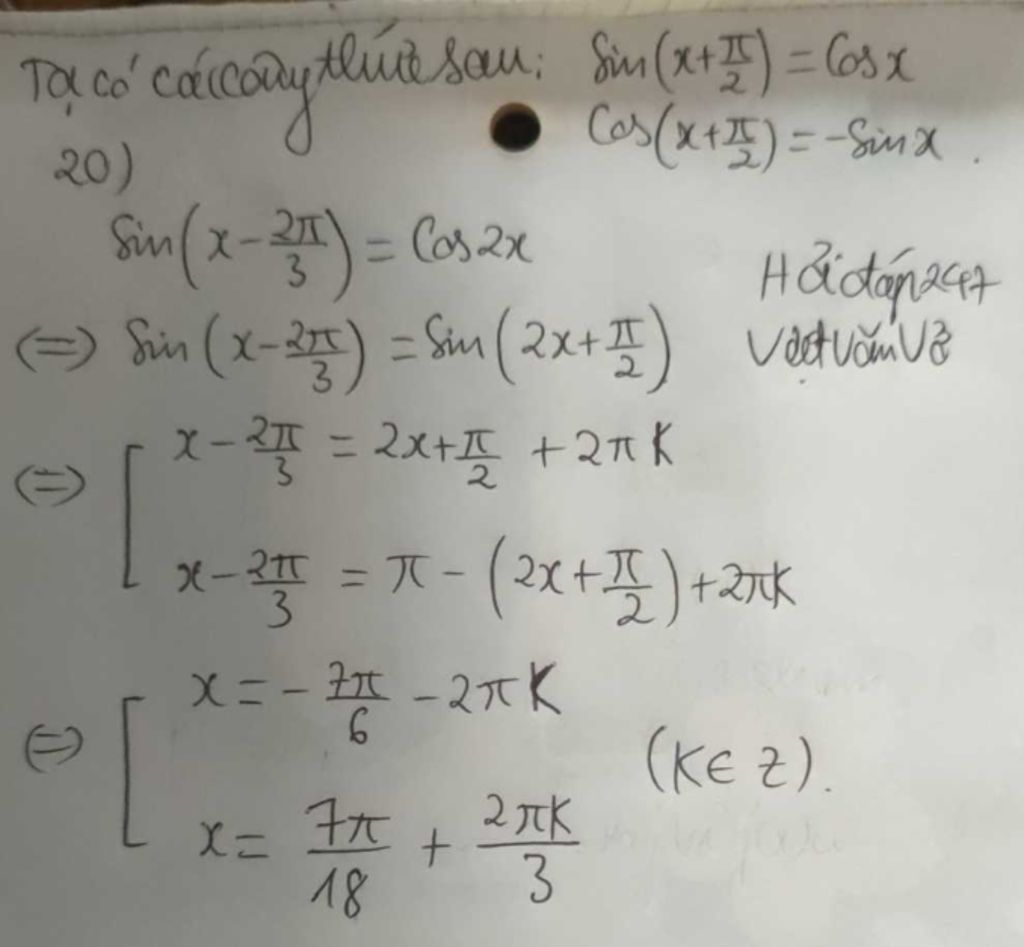 Ta có các công thức sau: Sin(x+π/2) = Cos x
Cos(x+π/2) = -Sin x.
20)
Sin(x - 2π/3) = Cos 2x
Hỏi đáp 247
(=) Sin(x - 2π/3) = Sin(2x + π/2)
Vẹt Vằn Vở
(=) [ x - 2π/3 = 2x + π/2 + 2πK
x - 2π/3 = π - (2x + π/2) + 2πK
(=) [ x = - 7π/6 - 2πK
(K∈Z).
x = 7π/18 + 2πK/3